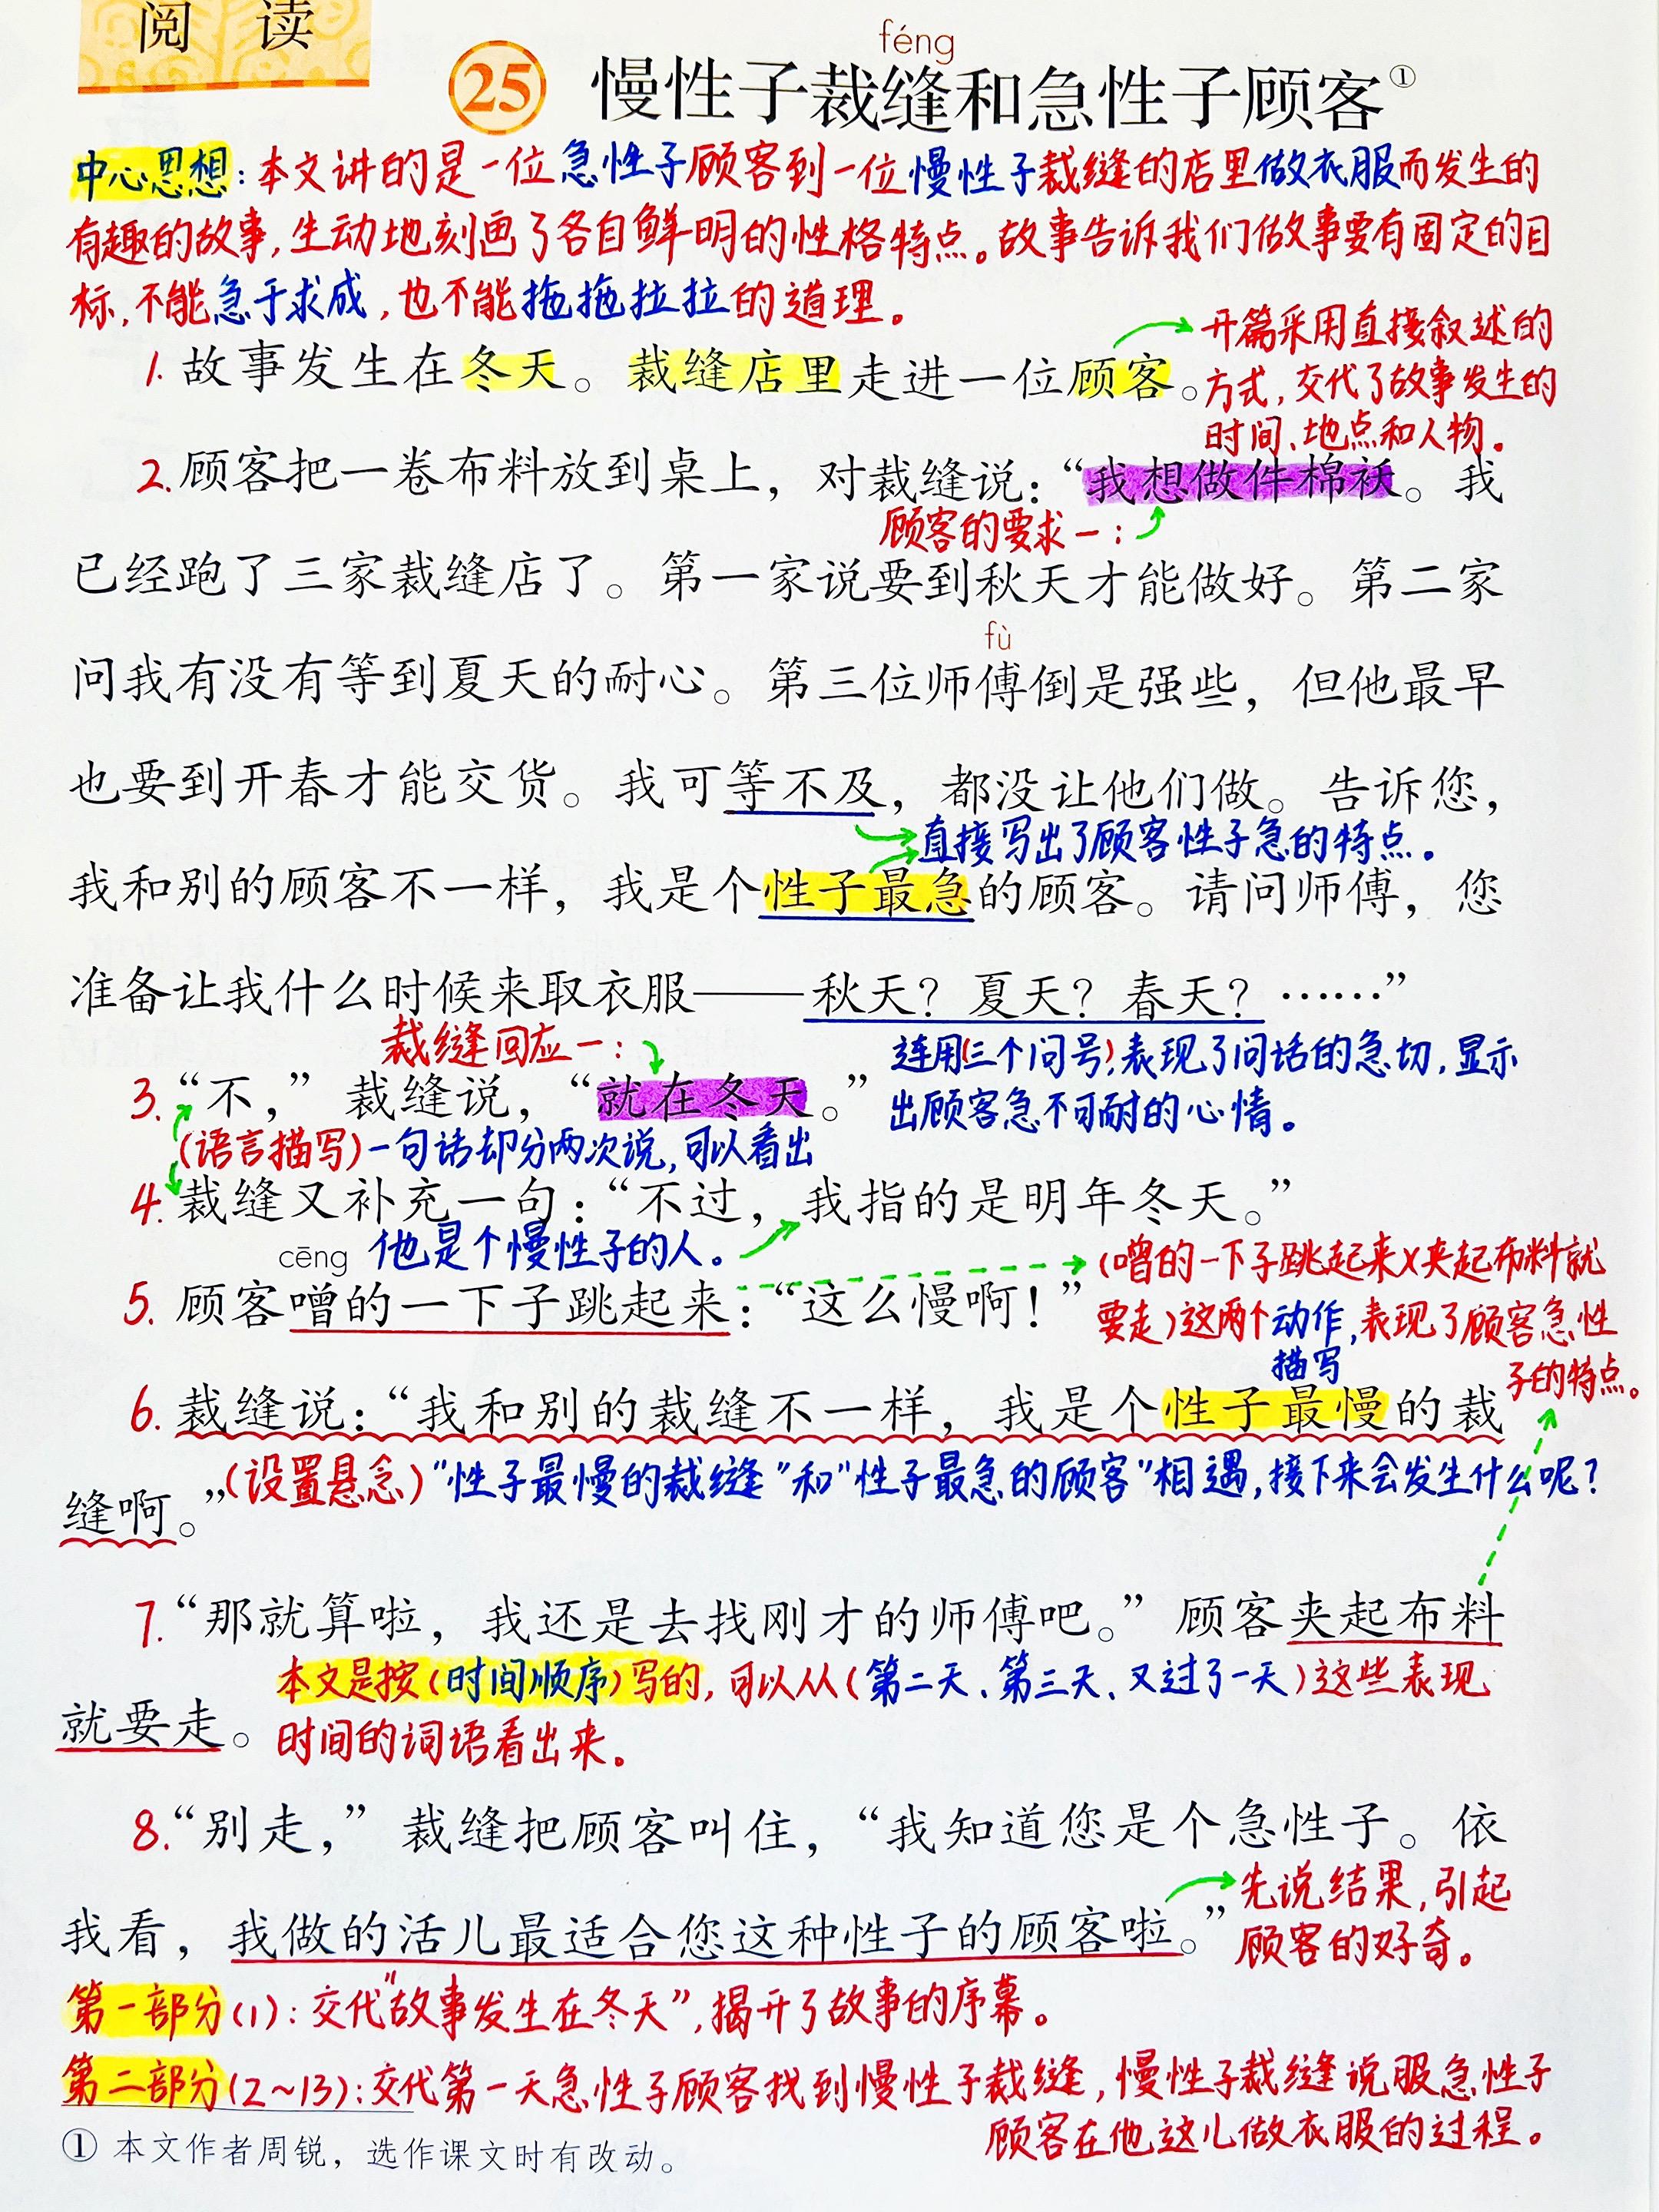 阅 读
féng
25 慢性子裁缝和急性子顾客①
中心思想：本文讲的是一位急性子顾客到一位慢性子裁缝的店里做衣服而发生的
有趣的故事，生动地刻画了各自鲜明的性格特点。故事告诉我们做故事要有固定的目
标，不能急于求成，也不能拖拖拉拉的道理。
开篇采用直接叙述的
1. 故事发生在冬天。裁缝店里走进一位顾客。
方式，交代了故事发生的
时间、地点和人物。
2. 顾客把一卷布料放到桌上，对裁缝说：“我想做件棉袄。我
顾客的要求一：
已经跑了三家裁缝店了。第一家说要到秋天才能做好。第二家
fù
问我有没有等到夏天的耐心。第三位师傅倒是强些，但他最早
也要到开春才能交货。我可等不及，都没让他们做。告诉您，
直接写出了顾客性子急的特点。
我和别的顾客不一样，我是个性子最急的顾客。请问师傅，您
准备让我什么时候来取衣服——秋天？夏天？春天？……”
裁缝回应一：
连用(三个问号)表现了问话的急切，显示
3. “不，”裁缝说，“就在冬天。”
出顾客急不可耐的心情。
(语言描写)一句话却分两次说，可以看出
4. 裁缝又补充一句：“不过，我指的是明年冬天。”
cēng 他是个慢性子的人。
(噌的一下子跳起来)(夹起布料就
5. 顾客噌的一下子跳起来：“这么慢啊！”
要走)这两个动作，表现了顾客急性
描写
子的特点。
6. 裁缝说：“我和别的裁缝不一样，我是个性子最慢的裁
(设置悬念)“性子最慢的裁缝”和“性子最急的顾客”相遇，接下来会发生什么呢？
缝啊。”
7. “那就算啦，我还是去找刚才的师傅吧。”顾客夹起布料
本文是按(时间顺序)写的，可以从(第二天、第三天、又过了一天)这些表现
就要走。
时间的词语看出来。
8. “别走，”裁缝把顾客叫住，“我知道您是个急性子。依
先说结果，引起
我看，我做的活儿最适合您这种性子的顾客啦。”
顾客的好奇。
第一部分(1)：交代“故事发生在冬天”，揭开了故事的序幕。
第二部分(2~13)：交代第一天急性子顾客找到慢性子裁缝，慢性子裁缝说服急性子
顾客在他这儿做衣服的过程。
① 本文作者周锐，选作课文时有改动。